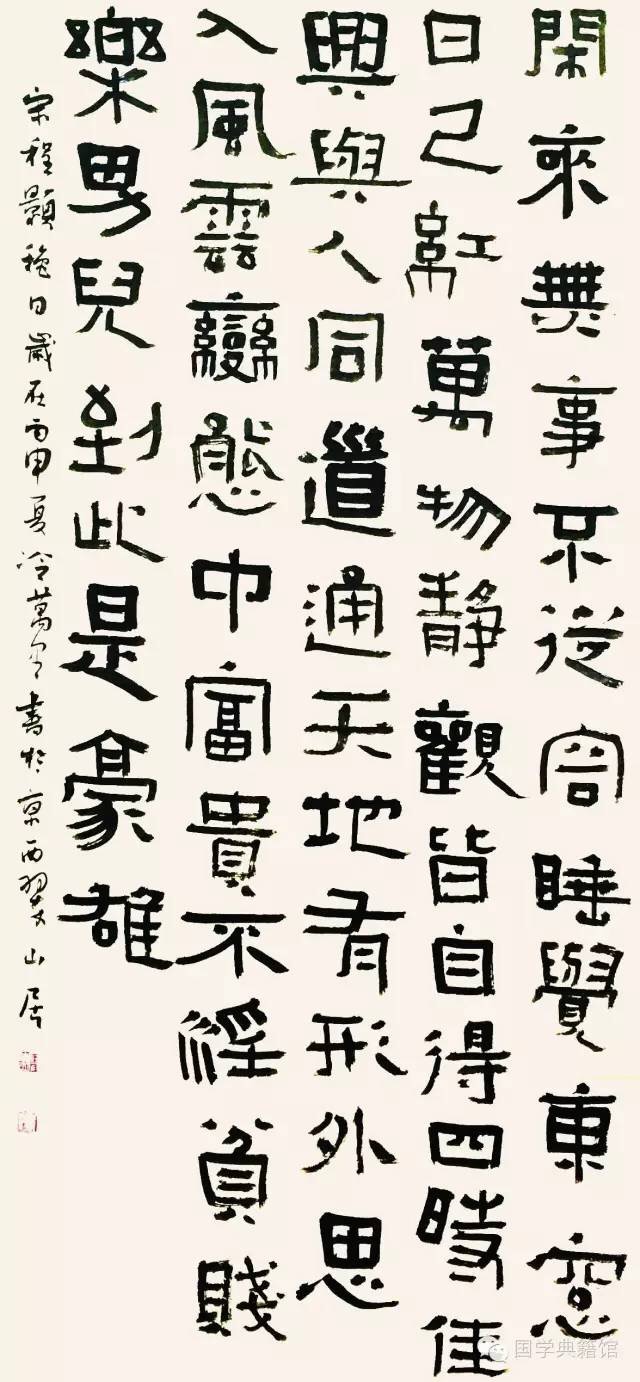 閑來無事不從容睡覺東窓
日已紅萬物靜觀皆自得四時佳
興與人同道通天地有形外思
入風雲變態中富貴不淫貧賤
樂男兒到此是豪雄
宋程顥穐日歲在丙申夏冷萬里書於京西翠山居
国学典籍馆